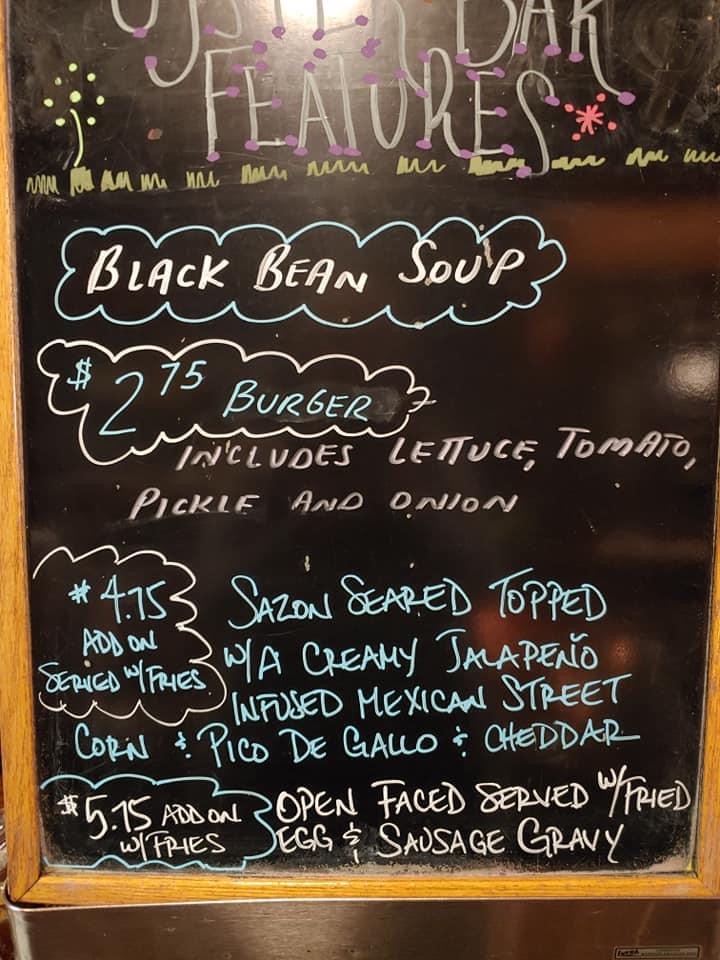 OYSTER BAR
FEATURES
BLACK BEAN SOUP
$2.75 BURGER
INCLUDES LETTUCE, TOMATO,
PICKLE AND ONION
$4.75
ADD ON
SERVED W/FRIES
SAZON SEARED TOPPED
W/A CREAMY JALAPEÑO
INFUSED MEXICAN STREET
CORN & PICO DE GALLO & CHEDDAR
$5.75 ADD ON
W/FRIES
OPEN FACED SERVED W/FRIED
EGG & SAUSAGE GRAVY